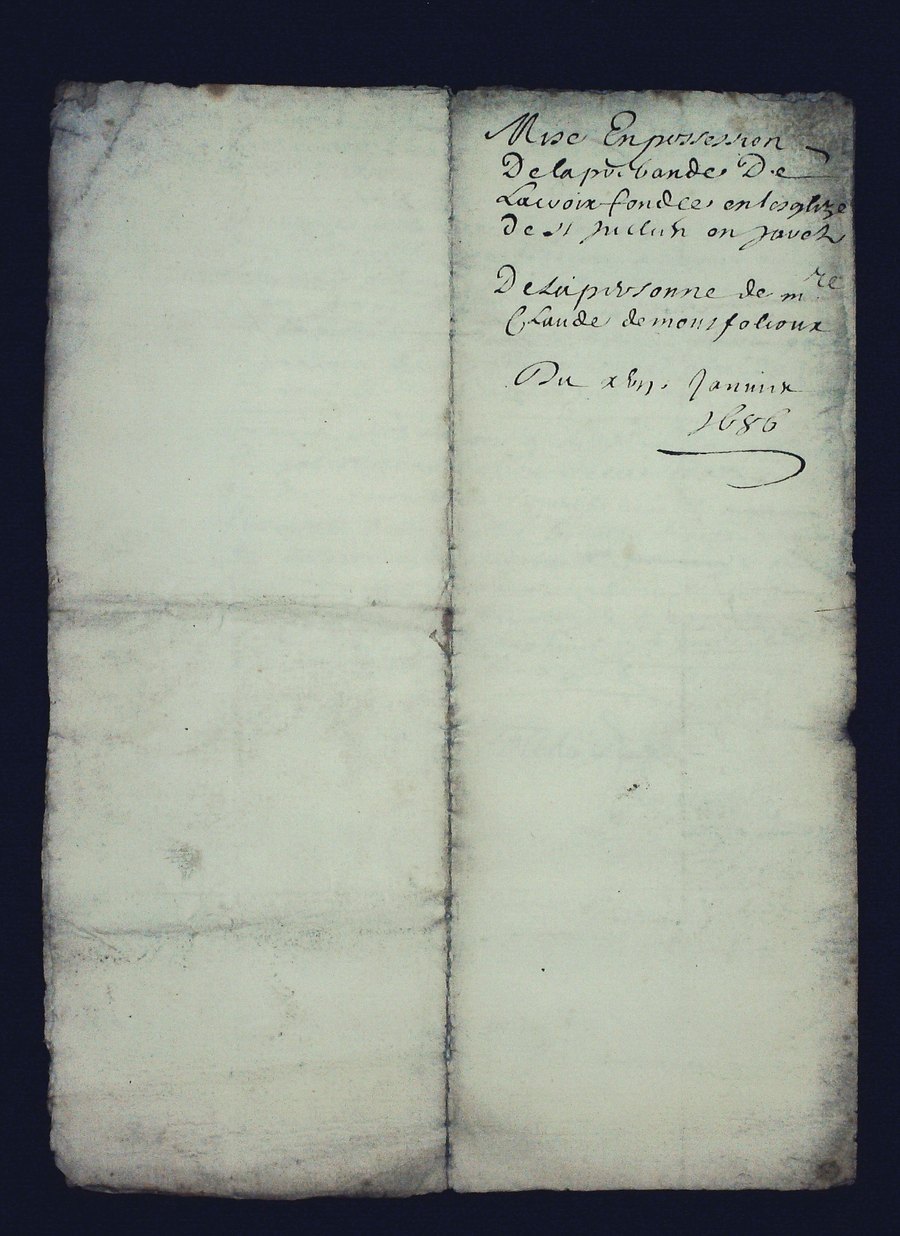 Mise En possession
De la prebande De
Lavoix fondee en lesglize
de St Jullien en Jarest
De la personne de mre
Claude de montfolioux
Du xvii Janvier
1686